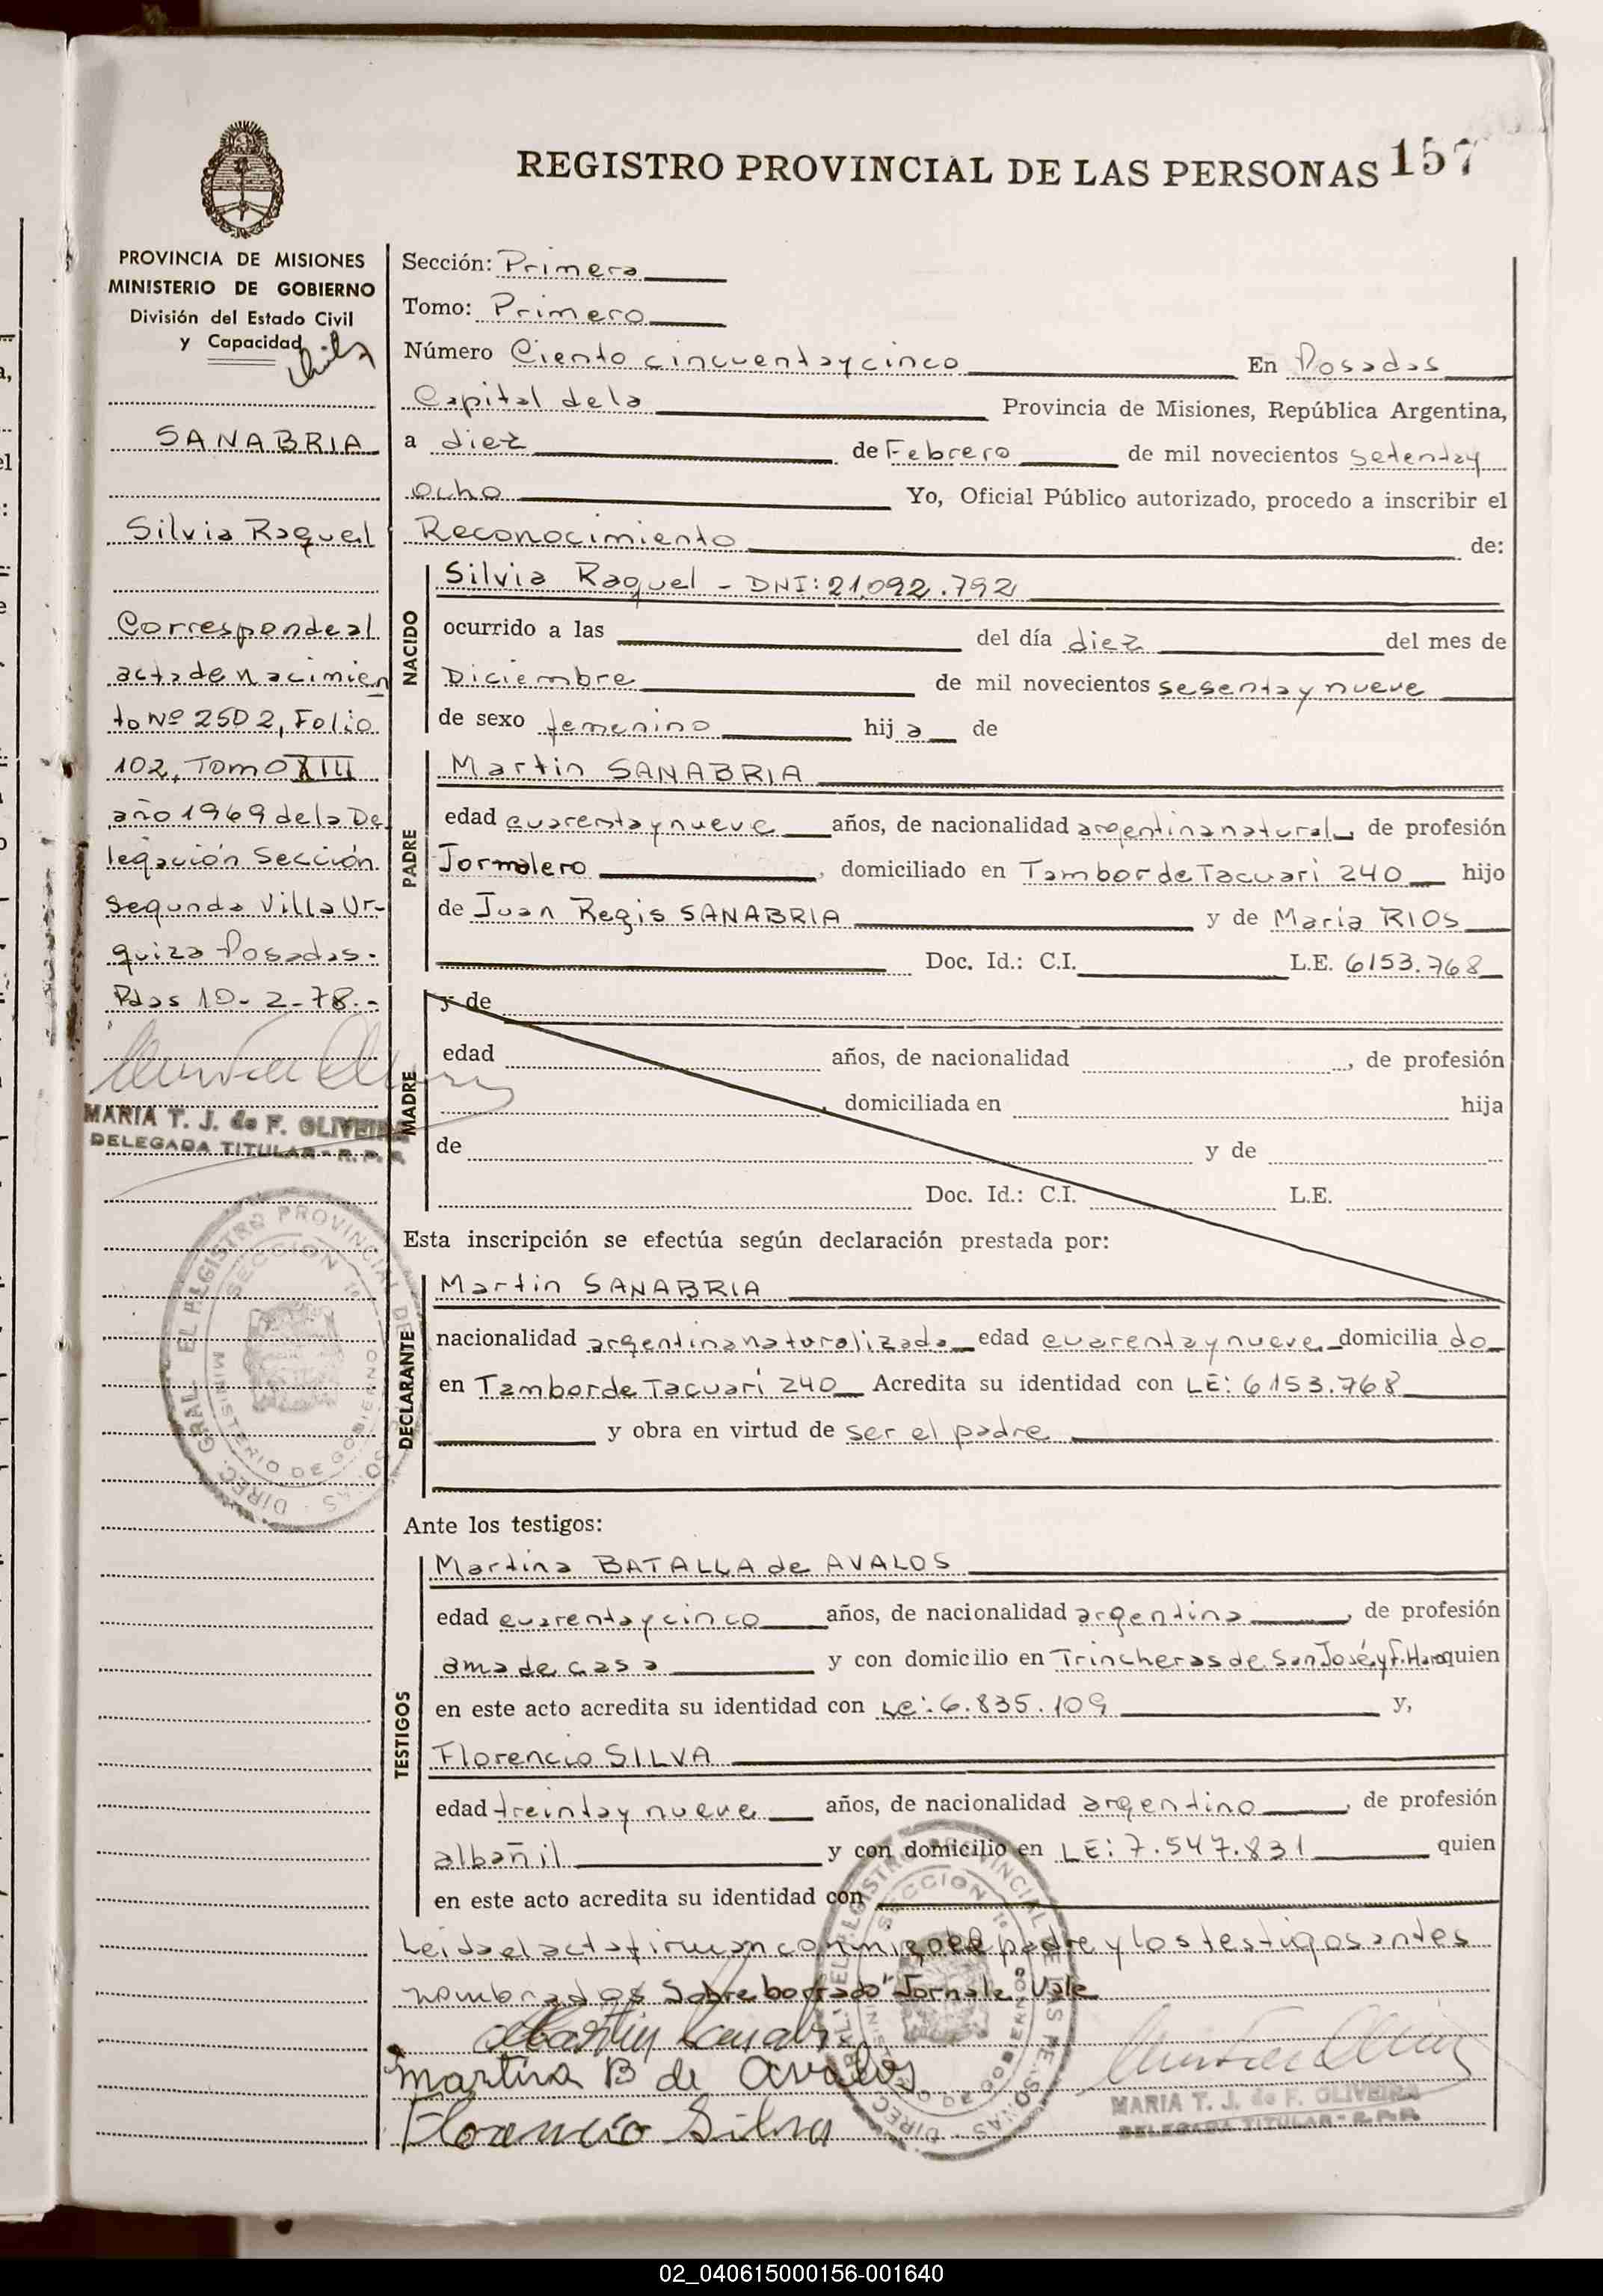 REGISTRO PROVINCIAL DE LAS PERSONAS 157
PROVINCIA DE MISIONES
MINISTERIO DE GOBIERNO
División del Estado Civil
y Capacidad
SANABRIA
Silvia Raquel
Corresponde al
acta de nacimien
to Nº 2502, Folio
102, Tomo XIII
año 1969 de la De
legación Sección
segunda Villa Ur-
quiza Posadas.
Pdas 10-2-78.-
MARIA T. J. de F. OLIVEIRA
DELEGADA TITULAR - R. P. P.
DIREC. GRAL. DEL REGISTRO PROVINCIAL DE LAS PERSONAS
SECCION 1a
MINISTERIO DE GOBIERNO
Sección: Primera
Tomo: Primero
Número Ciento cincuenta y cinco En Posadas
Capital de la Provincia de Misiones, República Argentina,
a diez de Febrero de mil novecientos setenta y
ocho Yo, Oficial Público autorizado, procedo a inscribir el
Reconocimiento de:
NACIDO
Silvia Raquel - DNI: 21.092.792
ocurrido a las del día diez del mes de
Diciembre de mil novecientos sesenta y nueve
de sexo femenino hij a de
PADRE
Martin SANABRIA
edad cuarenta y nueve años, de nacionalidad argentina natural, de profesión
Jornalero, domiciliado en Tambor de Tacuarí 240 hijo
de Juan Regis SANABRIA y de María RIOS
Doc. Id.: C.I. L.E. 6153.768
MADRE
y de
edad años, de nacionalidad , de profesión
, domiciliada en hija
de y de
Doc. Id.: C.I. L.E.
Esta inscripción se efectúa según declaración prestada por:
DECLARANTE
Martin SANABRIA
nacionalidad argentina naturalizado edad cuarenta y nueve domicilia do
en Tambor de Tacuarí 240 Acredita su identidad con LE: 6153.768
y obra en virtud de ser el padre
Ante los testigos:
TESTIGOS
Martina BATALLA de AVALOS
edad cuarenta y cinco años, de nacionalidad argentina, de profesión
ama de casa y con domicilio en Trincheras de San José y F. Haro quien
en este acto acredita su identidad con Lc: 6.835.109 y,
Florencio SILVA
edad treinta y nueve años, de nacionalidad argentino, de profesión
albañil y con domicilio en LE: 7.547.831 quien
en este acto acredita su identidad con
Leida el acta firman conmigo el padre y los testigos antes
nombrados Sobre borrado "Jornale Vale
Martin Sanabr
Martina B de Avalos
Florencio Silva
DIREC. GRAL. DEL REGISTRO PROVINCIAL DE LAS PERSONAS
SECCION 1a
MINISTERIO DE GOBIERNO
MARIA T. J. de F. OLIVEIRA
DELEGADA TITULAR - R. P. P.
02_040615000156-001640